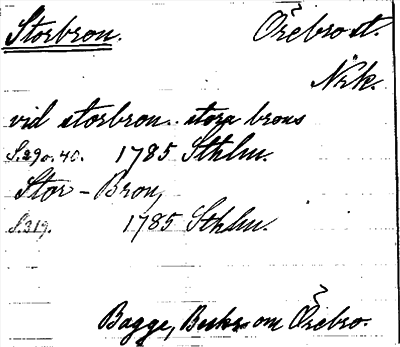 Storbron. Örebro st.
Närk.
vid storbron.. stora brons
S. 290. 40. 1785 Sthlm.
Stor-Bron,
S. 319. 1785 Sthlm.
Bagge, Beskr. om Örebro.